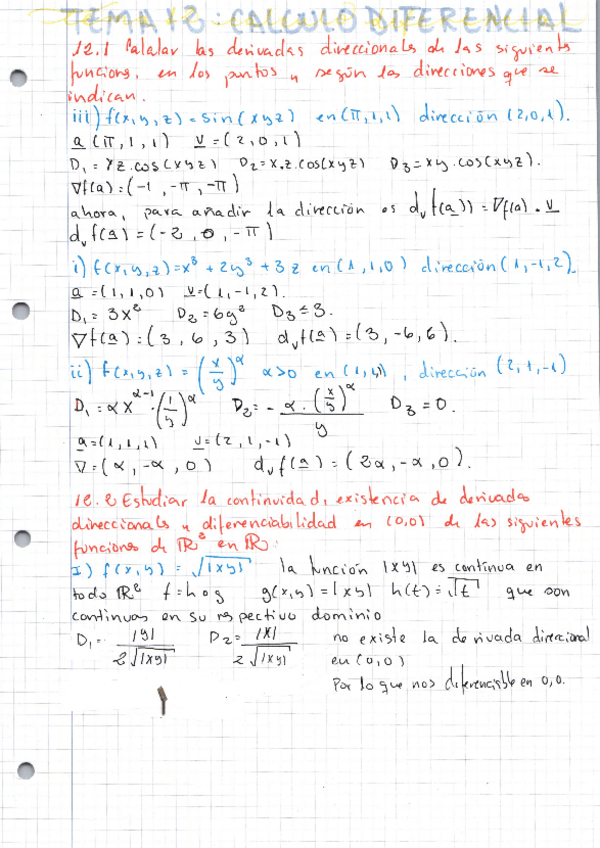 TEMA 12: CALCULO DIFERENCIAL
12.1 Calcular las derivadas direccionales de las siguients
funcions, en los puntos y según las direcciones que se
indican.
iii) f(x,y,z) = sin(xyz) en (π,1,1) dirección (2,0,1).
a (π,1,1) v = (2,0,1)
D₁ = yz.cos(xyz) D₂ = x.z.cos(xyz) D₃ = xy.cos(xyz).
∇f(a) = (-1, -π, -π)
ahora, para añadir la dirección es dᵥf(a)) = ∇f(a) · v
dᵥf(a) = (-2, 0, -π)
i) f(x,y,z) = x³ + 2y³ + 3z en (1,1,0) dirección (1,-1,2).
a = (1,1,0) v = (1,-1,2).
D₁ = 3x² D₂ = 6y² D₃ = 3.
∇f(a) = (3, 6, 3) dᵥf(a) = (3, -6, 6).
ii) f(x,y,z) = (x/y)^α α>0 en (1,1,1), dirección (2,1,-1)
D₁ = αx^(α-1) · (1/y)^α D₂ = - α·(x/y)^α / y D₃ = 0.
a = (1,1,1) v = (2,1,-1)
∇ = (α, -α, 0) dᵥf(a) = (2α, -α, 0).
12.2 Estudiar la continuidad, existencia de derivadas
direccionals y diferenciabilidad en (0,0) de las siguientes
funciones de ℝ² en ℝ:
I) f(x,y) = √|xy| la función |xy| es continua en
todo ℝ² f = h o g g(x,y) = |xy| h(t) = √t que son
continuas en su respectivo dominio
D₁ = |y| / 2√|xy| D₂ = |x| / 2√|xy| no existe la derivada direccional
en (0,0)
Por lo que no es diferenciable en 0,0.